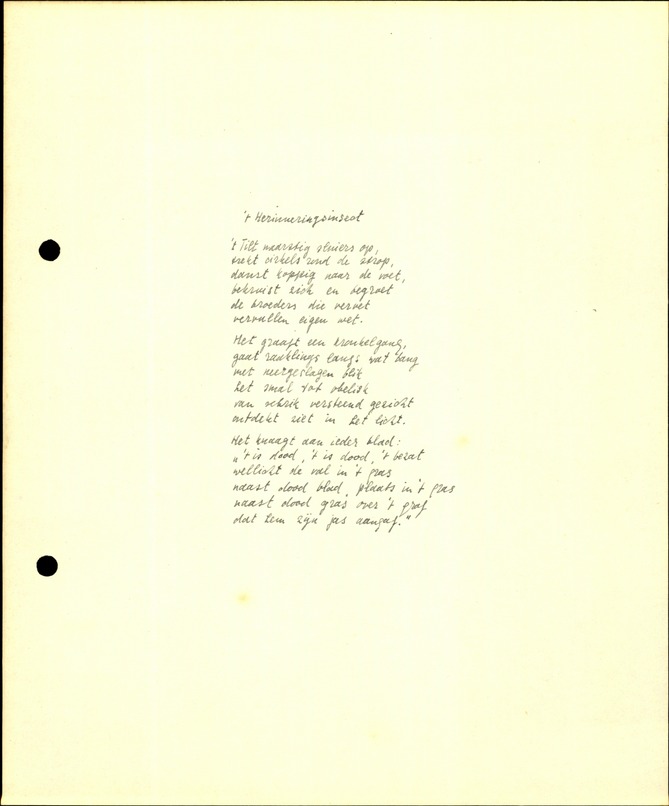 't Herinneringsinsect
't Tilt naarstig sluiers op,
trekt cirkels rond de strop,
danst koppig naar de voet,
bekruist zich en begroet
de broeders die vervet
vervullen eigen wet.
Het graaft een kronkelgang,
gaat raaklings langs wat bang
met neergeslagen blik
het smal tot obelisk
van schrik versteend gezicht
ontdekt ziet in het licht.
Het knaagt aan ieder blad:
"'t is dood, 't is dood, 't bezat
wellicht de val in 't gras
naast dood blad, plaats in 't gras
naast dood gras over 't graf
dat hem zijn jas aangaf."